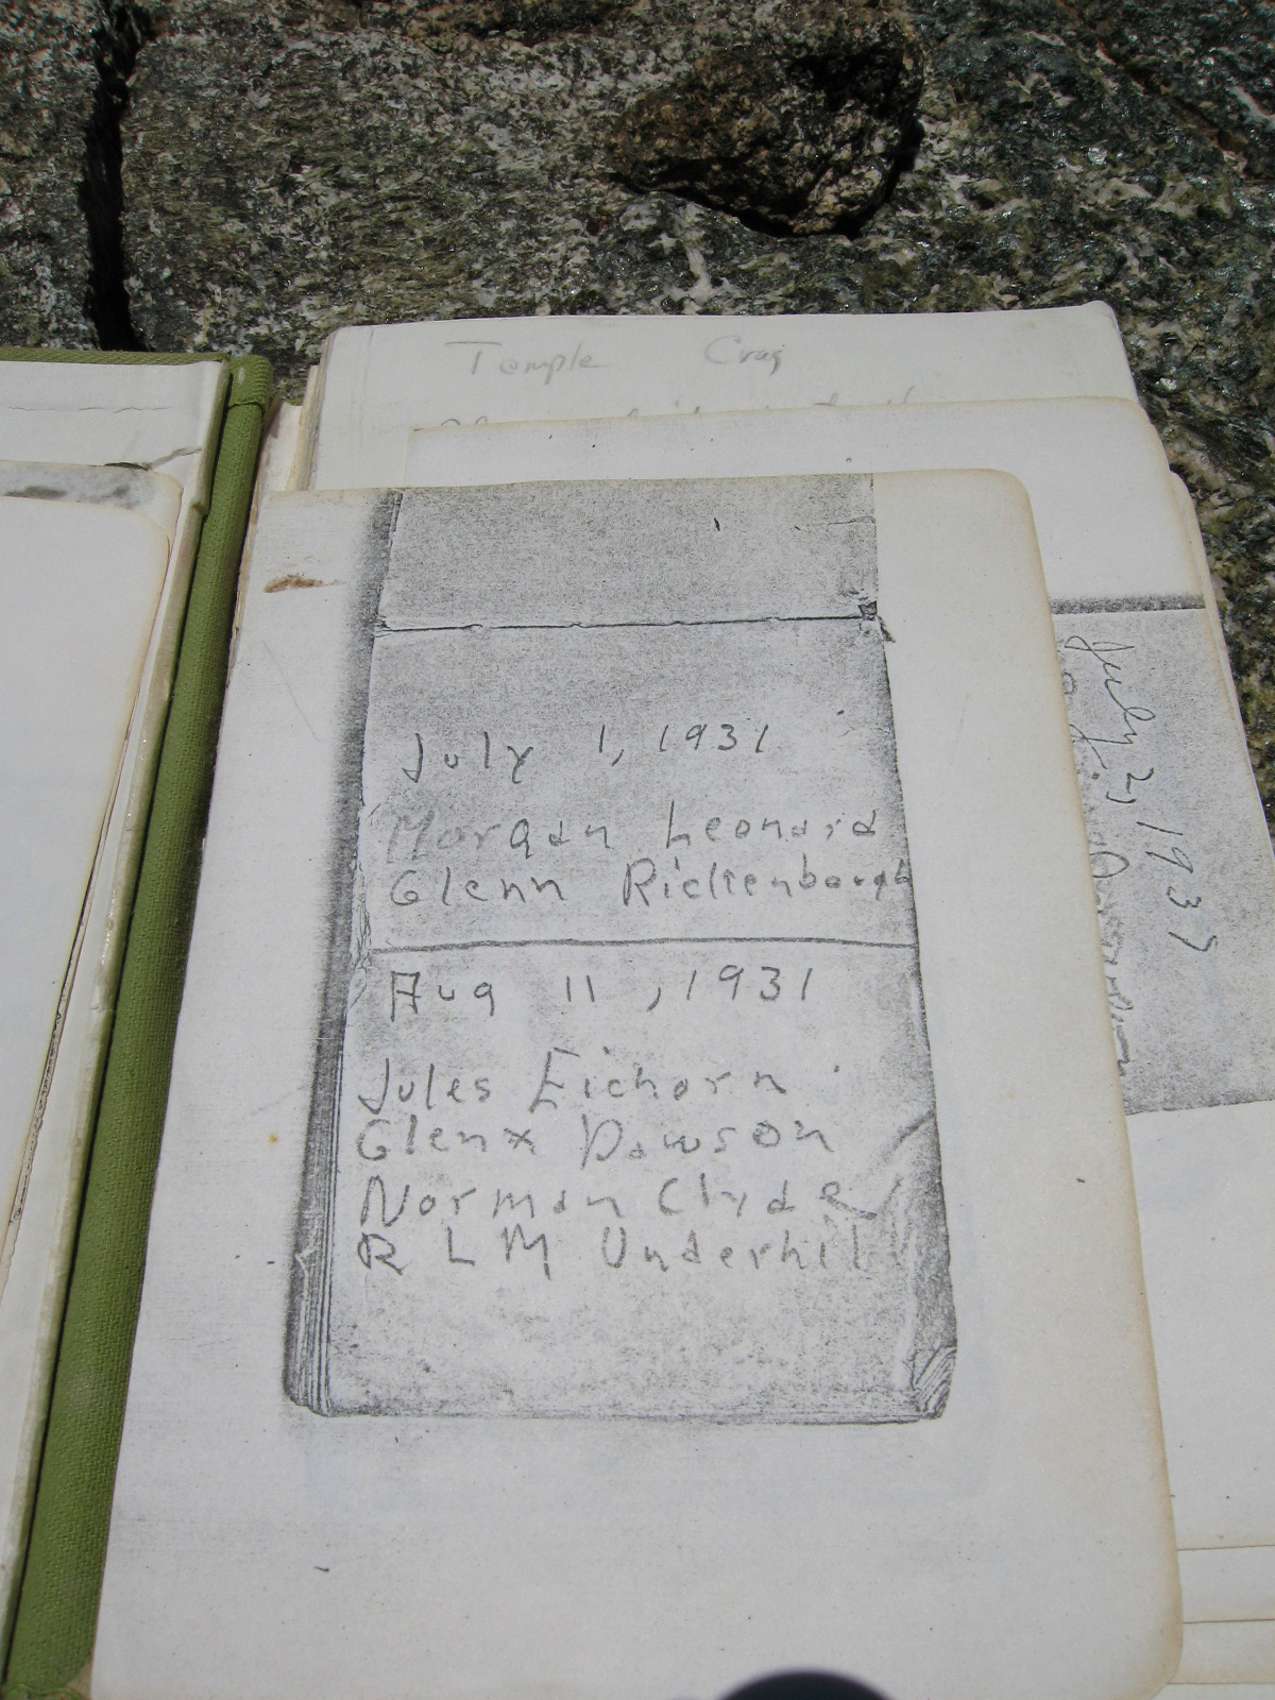 Temple Crag
July 1, 1931
Morgan Leonard
Glenn
Aug 11, 1931
Jules Eichorn
Glenn Dawson
Norman Clyde
R L M Underhill
July 2, 1937